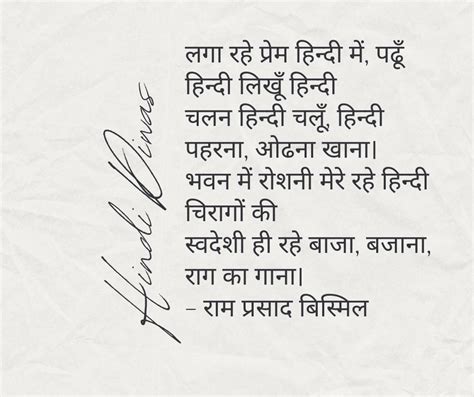 Hindi Dinas
लगा रहे प्रेम हिन्दी में, पढूँ
हिन्दी लिखूँ हिन्दी
चलन हिन्दी चलूँ, हिन्दी
पहरना, ओढना खाना।
भवन में रोशनी मेरे रहे हिन्दी
चिरागों की
स्वदेशी ही रहे बाजा, बजाना,
राग का गाना।
– राम प्रसाद बिस्मिल